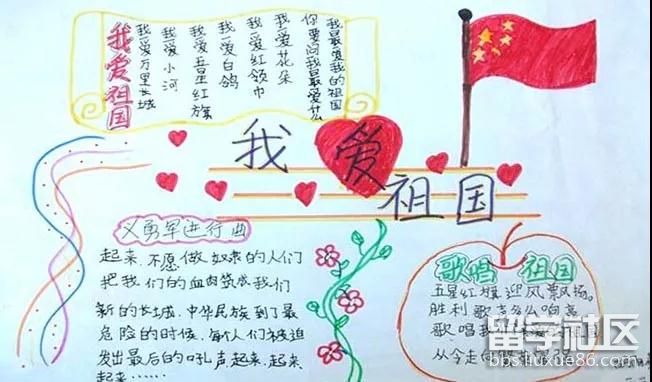 我爱祖国
我爱万里长城
我爱小河
我爱五星红旗
我爱白鸽
我爱红领巾
我爱花朵
你要问我最爱什么
我最爱我的祖国
我爱祖国
义勇军进行曲
起来.不愿做奴隶的人们
把我们的血肉筑成我们
新的长城.中华民族到了最
危险的时候.每个人们被迫
发出最后的吼声.起来.起来
起来……
歌唱 祖国
五星红旗迎风飘扬。
胜利歌声多么响亮
歌.唱我
从令走向
留学社区
bbs.liuxue86.com